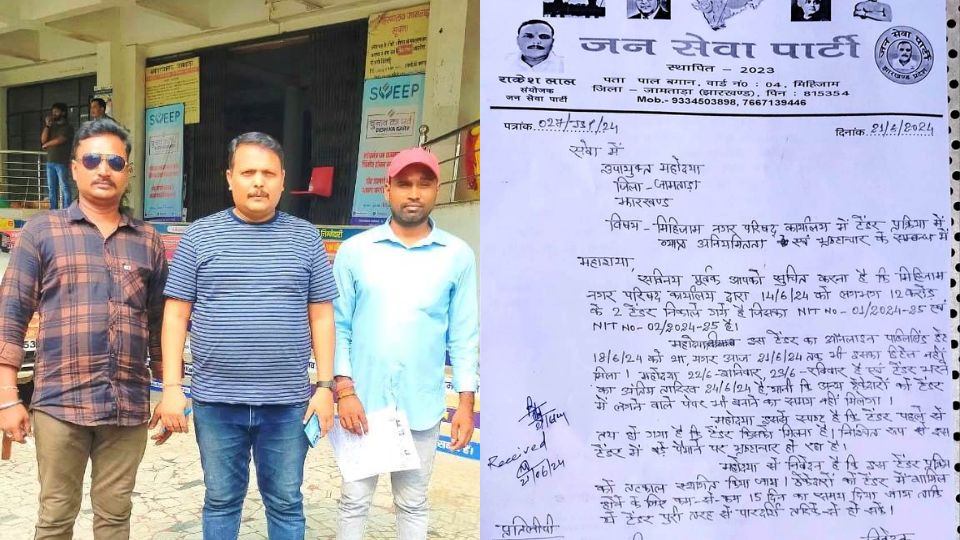 SWEEP
चुनाव का पर्व
SWEEP
जन सेवा पार्टी
स्थापित - 2023
राकेश लाल
संयोजक
जन सेवा पार्टी
पता पाल बगान, वार्ड नं० : 04, मिहिजाम
जिला - जामताड़ा (झारखण्ड), पिन : 815354
Mob.- 9334503898, 7667139446
जन सेवा पार्टी
झारखण्ड प्रदेश
पत्रांक. 027/JSP/24
दिनांक. 21/6/2024
सेवा में
उपायुक्त महोदया
जिला - जामताड़ा
झारखण्ड
विषय - मिहिजाम नगर परिषद कार्यालय में टेंडर प्रक्रिया में
व्याप्त अनियमितता एवं भ्रष्टाचार के सम्बन्ध में
महाशया
सविनय पूर्वक आपको सूचित करना है कि मिहिजाम
नगर परिषद कार्यालय द्वारा 14/6/24 को लगभग 12 करोड़
के 2 टेंडर निकाले गए है जिसका NIT No - 01/2024-25 एवं
NIT No - 02/2024-25 है।
महोदया इस टेंडर का ऑनलाइन पब्लिशिंग डेट
18/6/24 को था मगर आज 21/6/24 तक भी इसका डिटेल नहीं
मिला। महोदया 22/6 - शनिवार, 23/6 - रविवार है एवं टेंडर भरने
का अंतिम तारीख 24/6/24 है, यानी कि अन्य ठेकेदारों को टेंडर
में लगने वाले पेपर भी बनाने का समय नहीं मिलेगा।
महोदया इससे स्पष्ट है कि टेंडर पहले से
तय हो गया है कि टेंडर किसको मिलना है। निश्चित रूप से इस
टेंडर में बड़े पैमाने पर भ्रष्टाचार हो रहा है।
महोदया से निवेदन है कि इस टेंडर प्रक्रिया
को तत्काल स्थगित किया जाय। ठेकेदारों को टेंडर में शामिल
होने के लिए कम-से-कम 15 दिन का समय दिया जाय ताकि
ये टेंडर पूरी तरह से पारदर्शी तरीके से हो सके।
Received
21/06/24
प्रतिलिपी
निवेदक